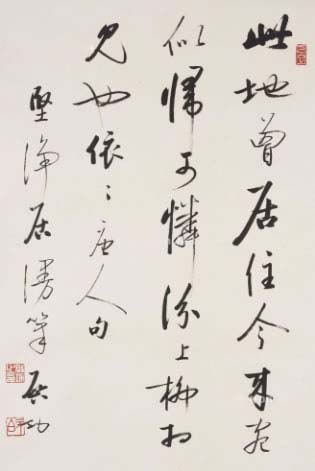 此地曾居住今来宛
似歸可憐汾上柳相
見也依〻唐人句
堅淨居漫筆 启功